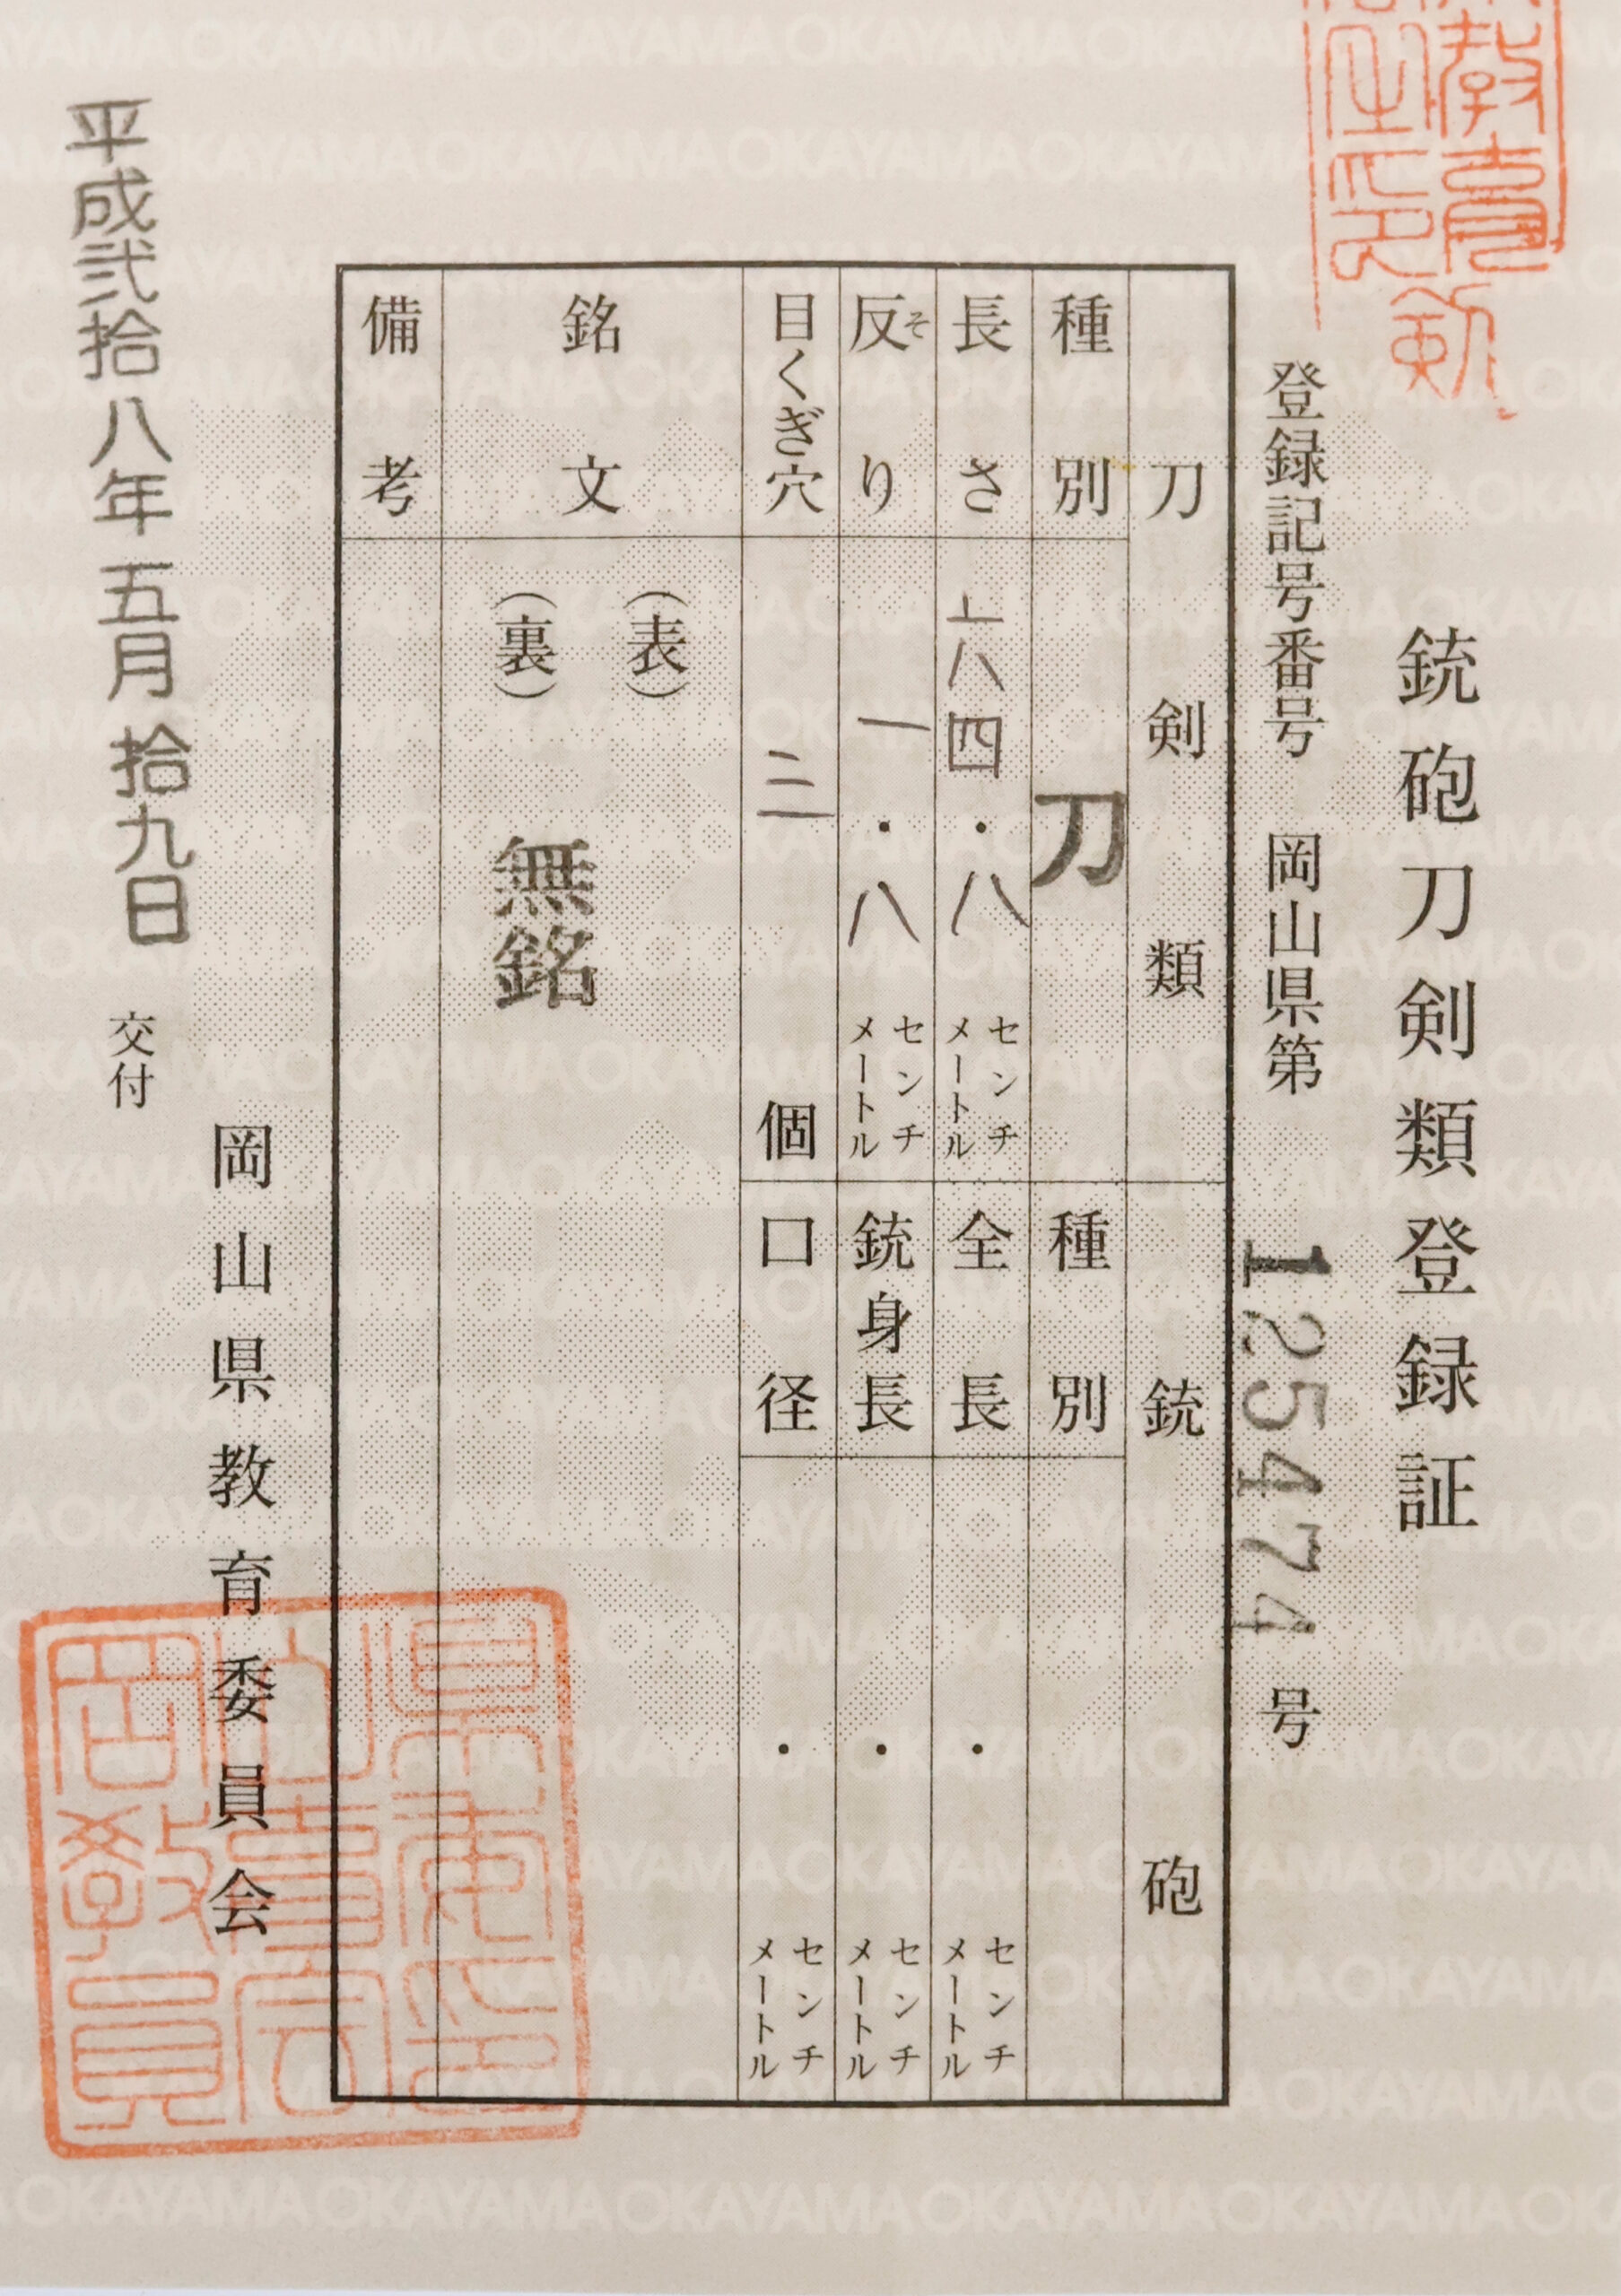 銃砲刀剣類登録証
登録記号番号 岡山県第 125474 号
刀剣類
種別 刀
長さ 六四・八 センチメートル
反り そ 一・八 センチメートル
目くぎ穴 三 個
銘文
(表)
(裏)
無銘
備考
銃砲
種別
全長 ・ センチメートル
銃身長 ・ センチメートル
口径 ・ センチメートル
平成弐拾八年五月拾九日 交付
岡山県教育委員会
岡山県教育委員会印
OKAYAMA